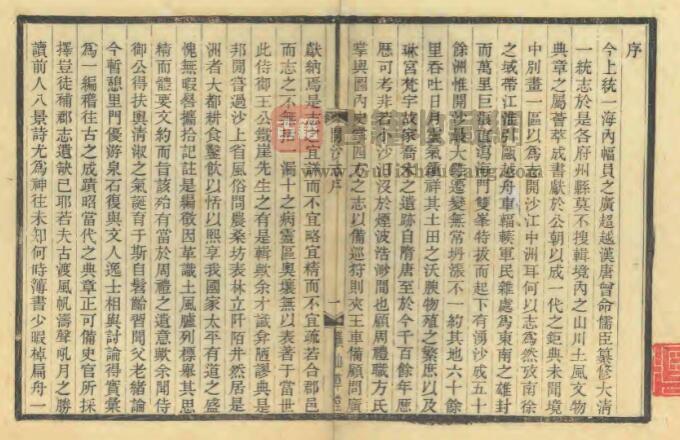 序
今上統一海內幅員之廣超越漢唐曾命儒臣纂修大清
一統志於是各府州縣莫不搜輯境內之山川土風文物
典章之屬薈萃成書獻於公朝以成一代之鉅典未聞境
中別畫一區以為 開沙江中洲耳何以志為然攷南徐
之域帶江淮引甌越舟車輻輳軍民雜處為東南之雄封
而萬里巨 海門雙峯特拔而起下有湧沙成五十
餘洲惟開沙最大 遷變無常坍漲不一約其地六十餘
里吞吐日月 雲氣 祥其土田之沃腴物殖之繁庶以及
琳宮梵宇故家喬木之遺跡自隋唐至於今千百餘年歷
歷可考非若小沙 沒於煙波浩渺間也顧周禮職方氏
掌輿圖內史 四方之志以備巡狩則夾王車備顧問廣
開沙 序
一
獻納焉是志 宜詳而不宜略宜精而不宜疏若合郡邑
而志之不無 一漏十之病靈區奧壤無以表著于當世
此侍御王公鐵崖先生之有是輯歟余才譾 陋謬典是
邦間嘗過沙上省風俗問農桑坊表林立阡陌井然居是
洲者大都耕食鑿飲以恬以熙享我國家太平有道之盛
愧無暇晷攟拾記註是編徵因革識土風臚列標舉其思
精而體要文約而旨該殆有當於周禮之遺意歟余聞侍
御公得扶輿清淑之氣誕育于斯自髫齡習聞父老緒論
今暫憩里門優游泉石復與文人逸士相與討論得實彙
為一編稽往古之成蹟昭當代之典章正可備史官所採
擇豈徒補郡志遺缺已耶若夫古渡風帆濤聲吼月之勝
讀前人八景詩尤為神往未知何時簿書少暇棹扁舟一
古籍
www.GuJiShuGuang.com